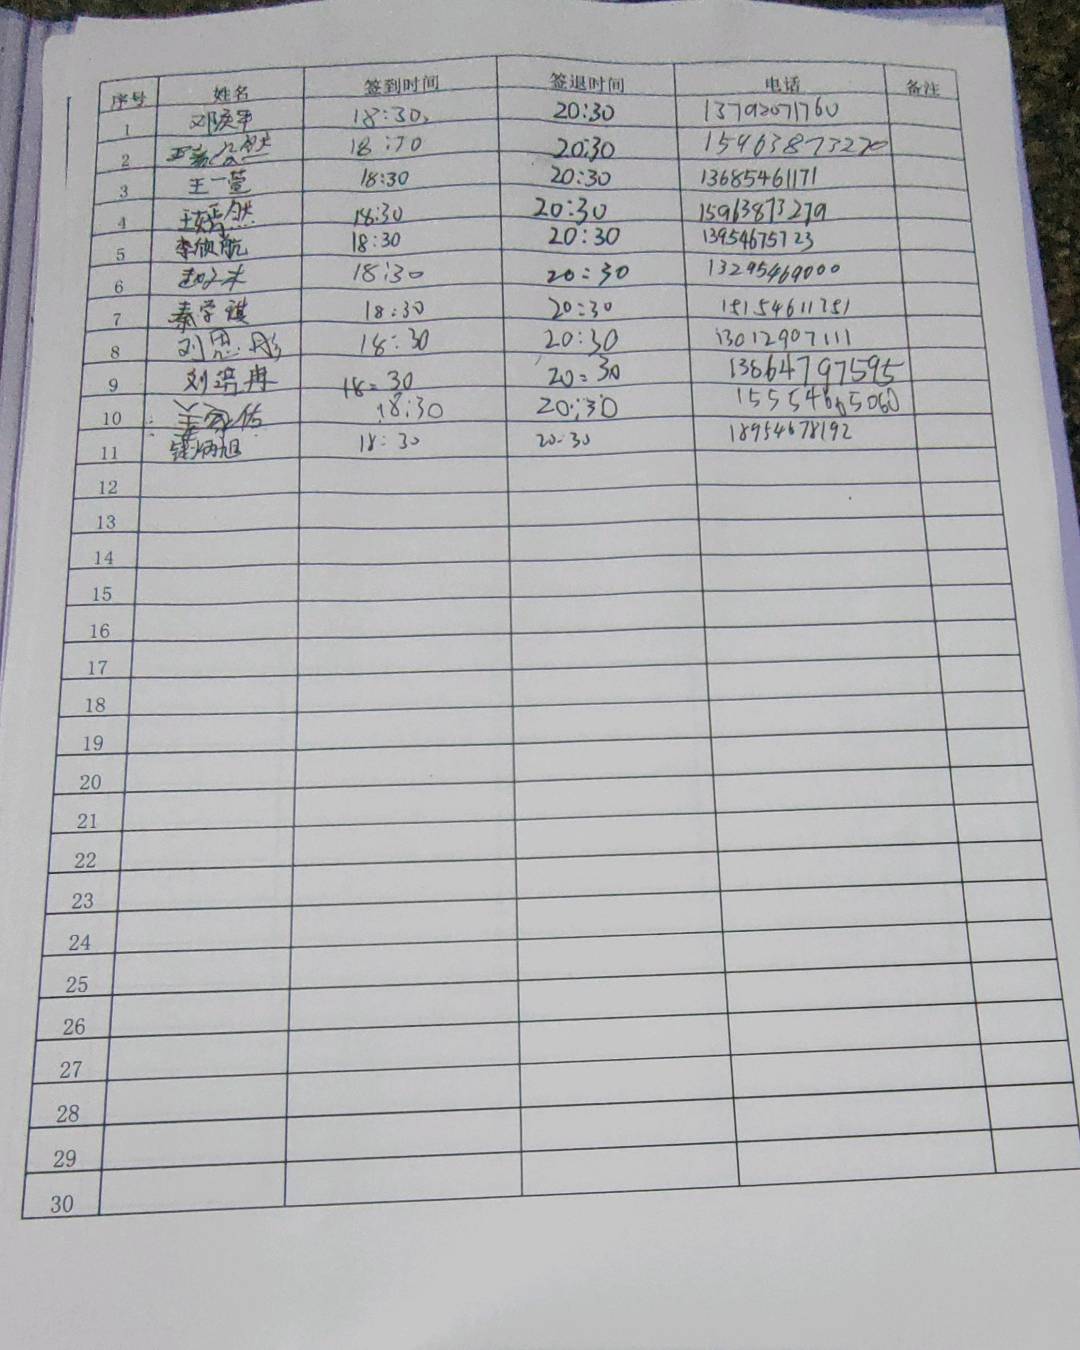 序号 姓名 签到时间 签退时间 电话 备注
1 18:30 20:30 13792071760
2 20:30
3 王一萱 18:30 20:30 13685461171
4 18:30 20:30 15963873279
5 李欣航 18:30 20:30 13954675723
6 18:30 20:30 13295469000
7 秦学祺 18:30 20:30 15154611751
8 刘思彤 18:30 20:30 13012907111
9 刘 冉 18:30 20:30 13864797595
10 18:30 20:30 15554665060
11 18:30 20:30 18954678192
12
13
14
15
16
17
18
19
20
21
22
23
24
25
26
27
28
29
30